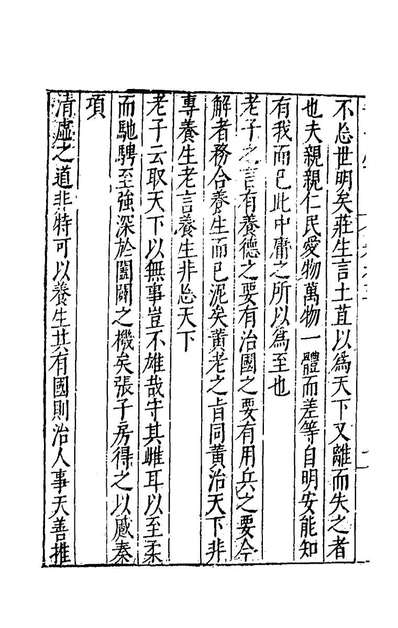 不忘世明矣莊生言土苴以為天下又離而失之者
也夫親親仁民愛物萬物一體而差等自明安能知
有我而已此中庸之所以為至也
老子之言有養德之要有治國之要有用兵之要今
解者務合養生而已泥矣黄老之旨同黄治天下非
專養生老言養生非忘天下
老子云取天下以無事豈不雄哉守其雌耳以至柔
而馳騁至強深於闔闢之機矣張子房得之以蹙秦
項
清虛之道非特可以養生其有國則治人事天善推